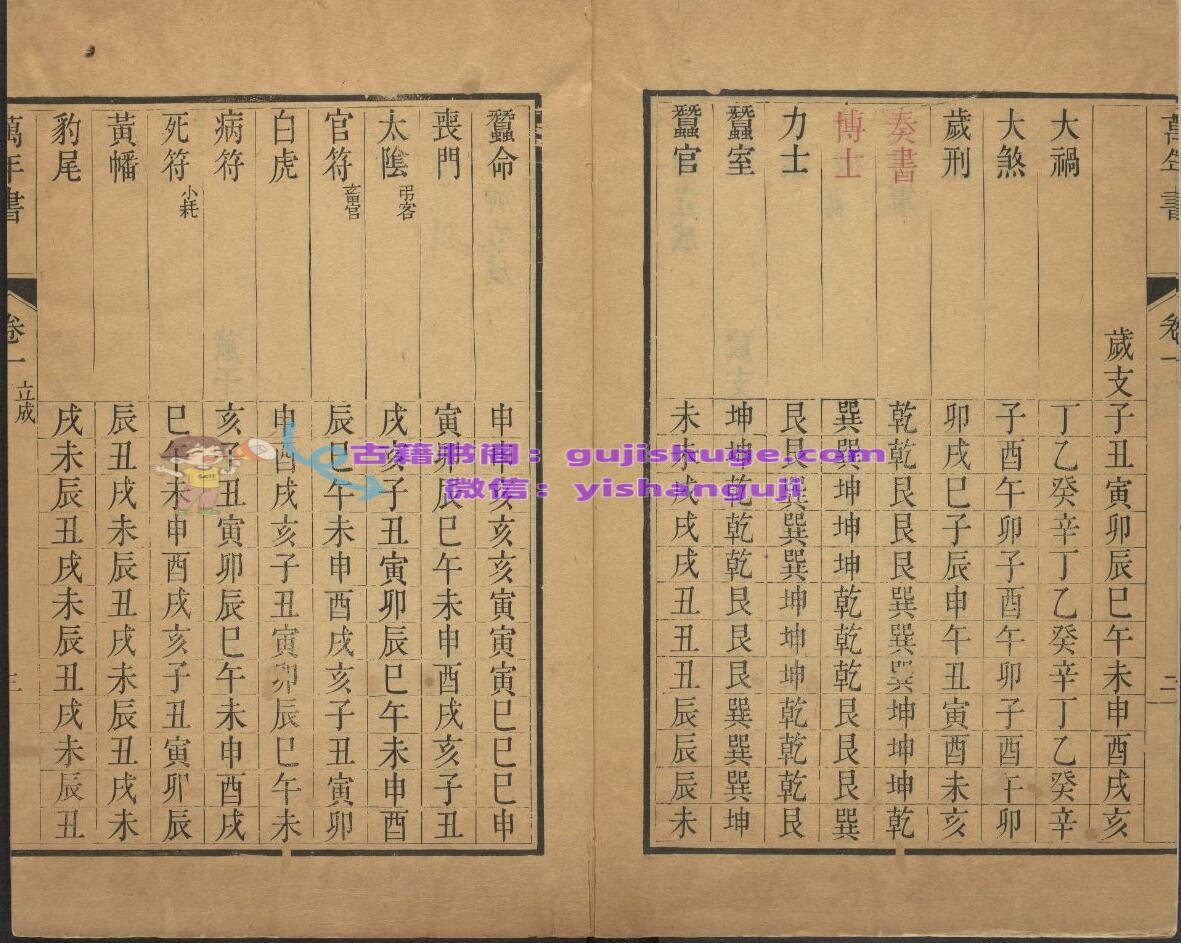 萬年書 卷一 二
歲支 子丑寅卯辰巳午未申酉戌亥
大禍 丁乙癸辛丁乙癸辛丁乙癸辛
大煞 子酉午卯子酉午卯子酉午卯
歲刑 卯戌巳子辰申午丑寅酉未亥
奏書 乾乾艮艮艮巽巽巽坤坤坤乾
博士 巽巽坤坤坤乾乾乾艮艮艮巽
力士 艮艮巽巽巽坤坤坤乾乾乾艮
蠶室 坤坤乾乾乾艮艮艮巽巽巽坤
蠶官 未未戌戌戌丑丑丑辰辰辰未
蠶命 申申亥亥亥寅寅寅巳巳巳申
喪門 寅卯辰巳午未申酉戌亥子丑
太陰 弔客 戌亥子丑寅卯辰巳午未申酉
官符 畜官 辰巳午未申酉戌亥子丑寅卯
白虎 申酉戌亥子丑寅卯辰巳午未
病符 亥子丑寅卯辰巳午未申酉戌
死符 小耗 巳午未申酉戌亥子丑寅卯辰
黃幡 辰丑戌未辰丑戌未辰丑戌未
豹尾 戌未辰丑戌未辰丑戌未辰丑
萬年書 卷一 立成 三
古籍书阁：gujishuge.com
微信：yishanguji